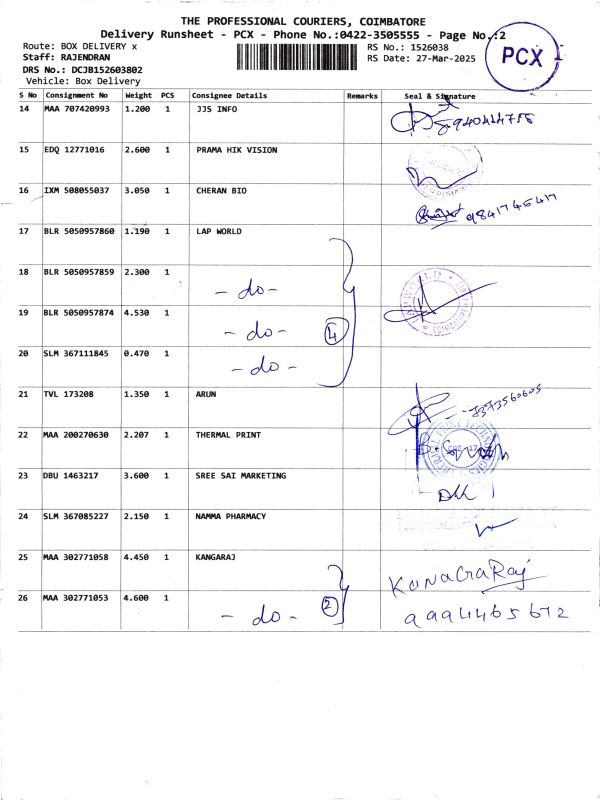 THE PROFESSIONAL COURIERS, COIMBATORE
Delivery Runsheet - PCX - Phone No.:0422-3505555 - Page No.:2
Route: BOX DELIVERY x
RS No.: 1526038
Staff: RAJENDRAN
RS Date: 27-Mar-2025
DRS No.: DCJB152603802
Vehicle: Box Delivery
PCX
S No Consignment No Weight PCS Consignee Details Remarks Seal & Signature
14 MAA 707420993 1.200 1 JJS INFO
15 EDQ 12771016 2.600 1 PRAMA HIK VISION
16 IXM 508055037 3.050 1 CHERAN BIO
9841745417
17 BLR 5050957860 1.190 1 LAP WORLD
18 BLR 5050957859 2.300 1 - do -
19 BLR 5050957874 4.530 1 - do - 4
20 SLM 367111845 0.470 1 - do -
21 TVL 173208 1.350 1 ARUN
7373560605
22 MAA 200270630 2.207 1 THERMAL PRINT
23 DBU 1463217 3.600 1 SREE SAI MARKETING
24 SLM 367085227 2.150 1 NAMMA PHARMACY
25 MAA 302771058 4.450 1 KANGARAJ
KanaGaRaj
26 MAA 302771053 4.600 1 - do - 2
9994465672